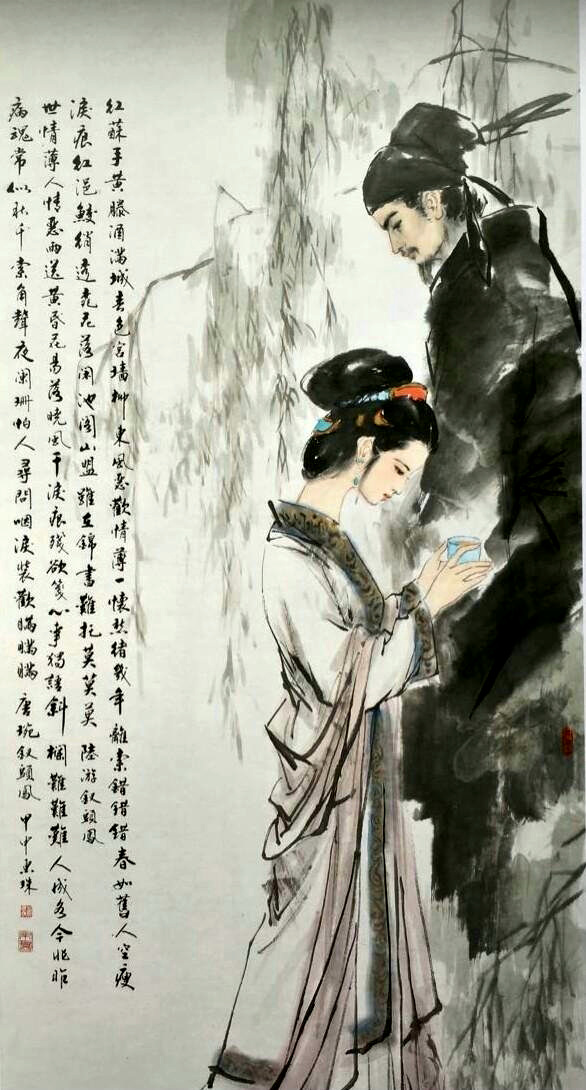 红蘇手黄滕酒滿城春色宮墙柳東風惡歡情薄一懷愁绪幾年離索錯錯錯春如舊人空瘦
淚痕红浥鲛绡透桃花落闲池阁山盟雖在錦書難托莫莫莫 陸游釵頭鳳
世情薄人情惡雨送黄昏花易落晓風干淚痕残欲笺心事獨語斜栏難難難人成各今非昨
病魂常似秋千索角聲夜阑珊怕人尋問咽淚装歡瞒瞒瞒 唐琬釵頭鳳 甲申